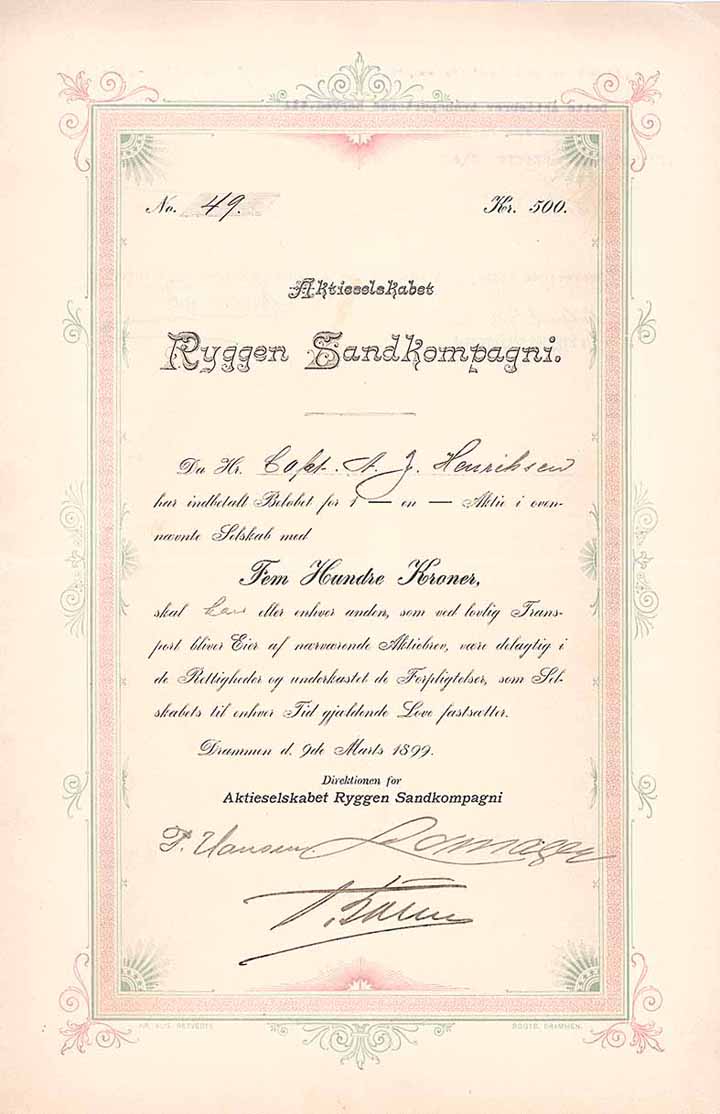 No. 49. Kr. 500.
Aktieselskabet
Ryggen Sandkompagni.
Da Hr. Capt. A. J. Henriksen
har indbetalt Beløbet for 1 — en — Aktie i oven-
nævnte Selskab med
Fem Hundre Kroner,
skal han eller enhver anden, som ved lovlig Trans-
port bliver Eier af nærværende Aktiebrev, være delagtig i
de Rettigheder og underkastet de Forpligtelser, som Sel-
skabets til enhver Tid gjældende Love fastsætter.
Drammen d. 9de Marts 1899.
Direktionen for
Aktieselskabet Ryggen Sandkompagni
P. Hansen.
BOGTR. DRAMMEN.